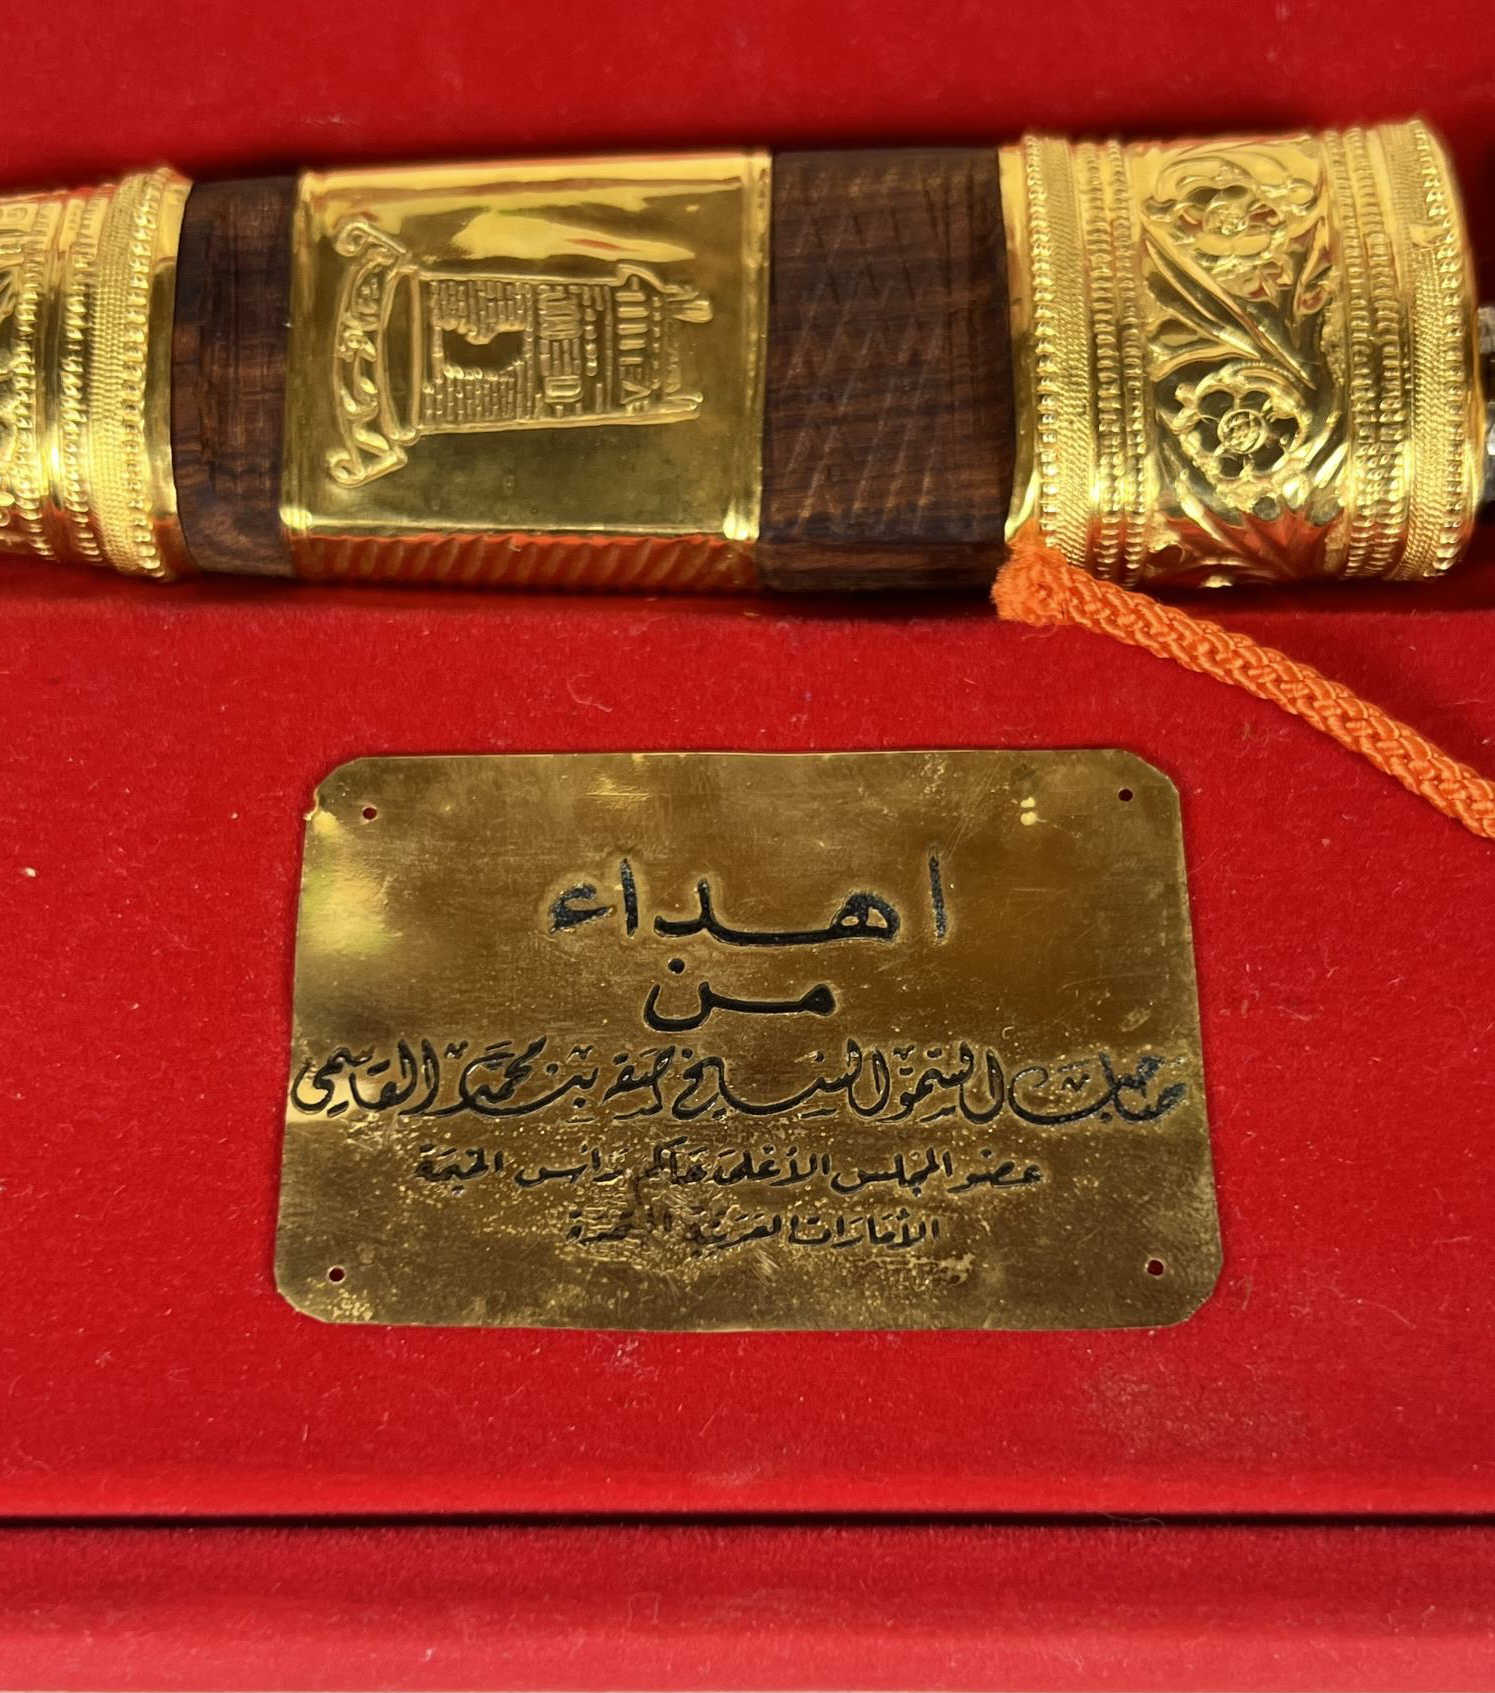 اهداء
من
صاحب السمو الشيخ صقر بن محمد القاسمي
عضو المجلس الأعلى حاكم رأس الخيمة
الأمارات العربية المتحدة